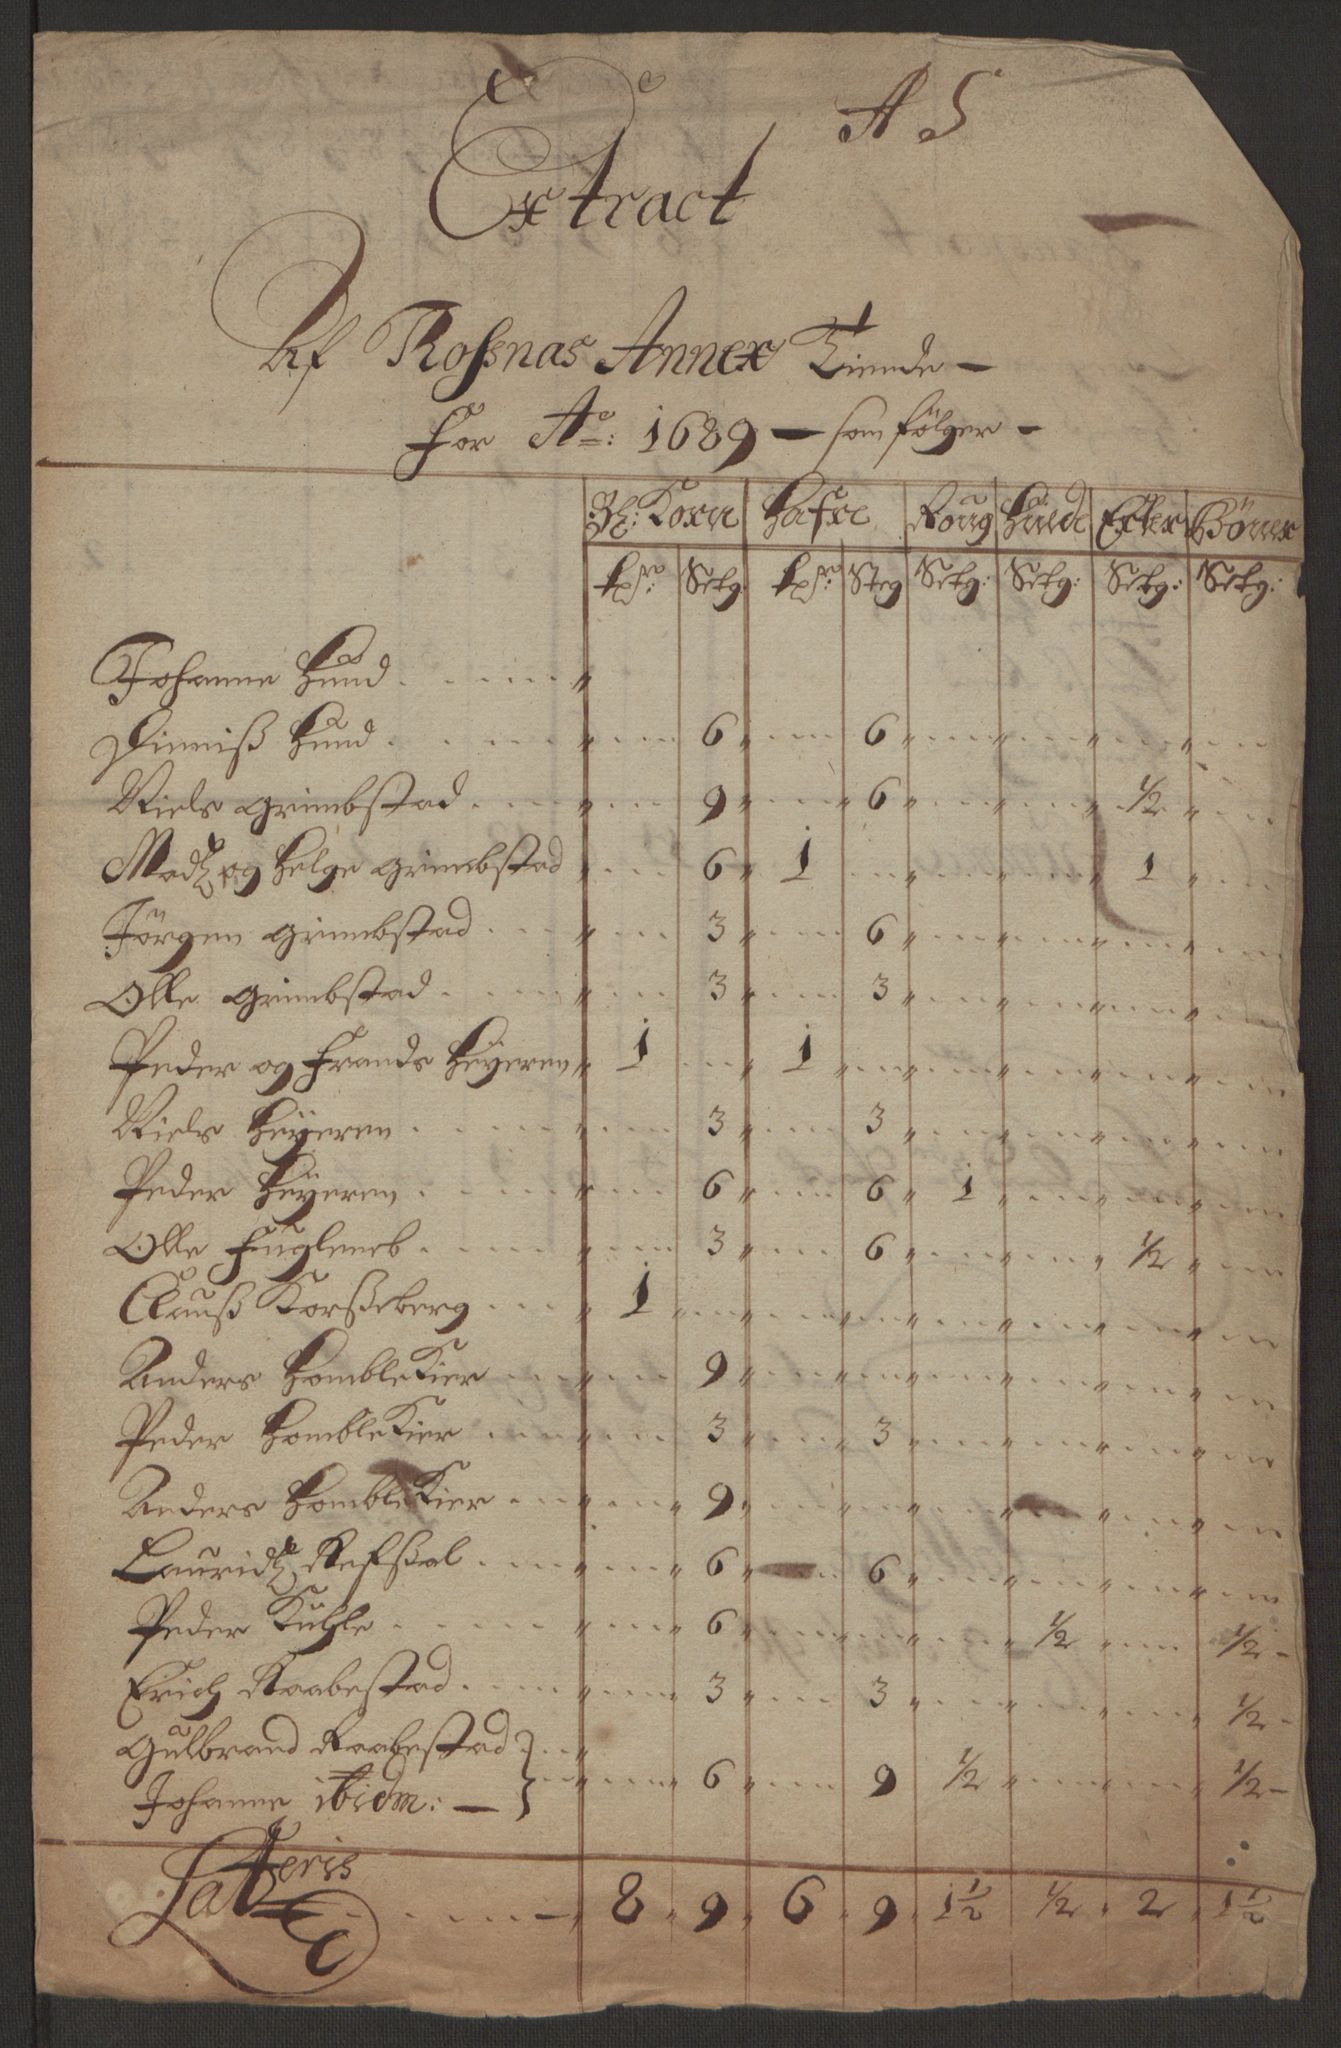 A 5
Extract
Af Rossnas Annex Tiende —
for Ao: 1689 — som fölger —
Bl: Korn Hafre Roug Huede Erter Bönner
Setg: Steg Setg: Setg: Setg: Setg:
Johanne Hund
Dinniß Hund 6 6
Niels Grimbstad 9 6 1/2
Madtz og Helge Grimbstad 6 1 1
Jörgen Grimbstad 3 6
Olle Grimbstad 3 3
Peder og Frands Heyeren 1 1
Niels Heÿeren 3 3
Peder Heÿeren 6 6 1
Olle Fugleneb 3 6 1/2
Clauß Korßeberg 1
Anders HombleKier 9
Peder HombleKier 3 3
Anders HombleKier 9
Lauridtz Refßal 6 6
Peder Kuhle 6 1/2 1/2 -
Erich Raabestad 3 3 1/2 -
Gulbrand Raabestad
Johanne ibidm: — 6 9 1/2 1/2 -
Latteris 8 9 6 9 1 1/2 1/2 2 1 1/2